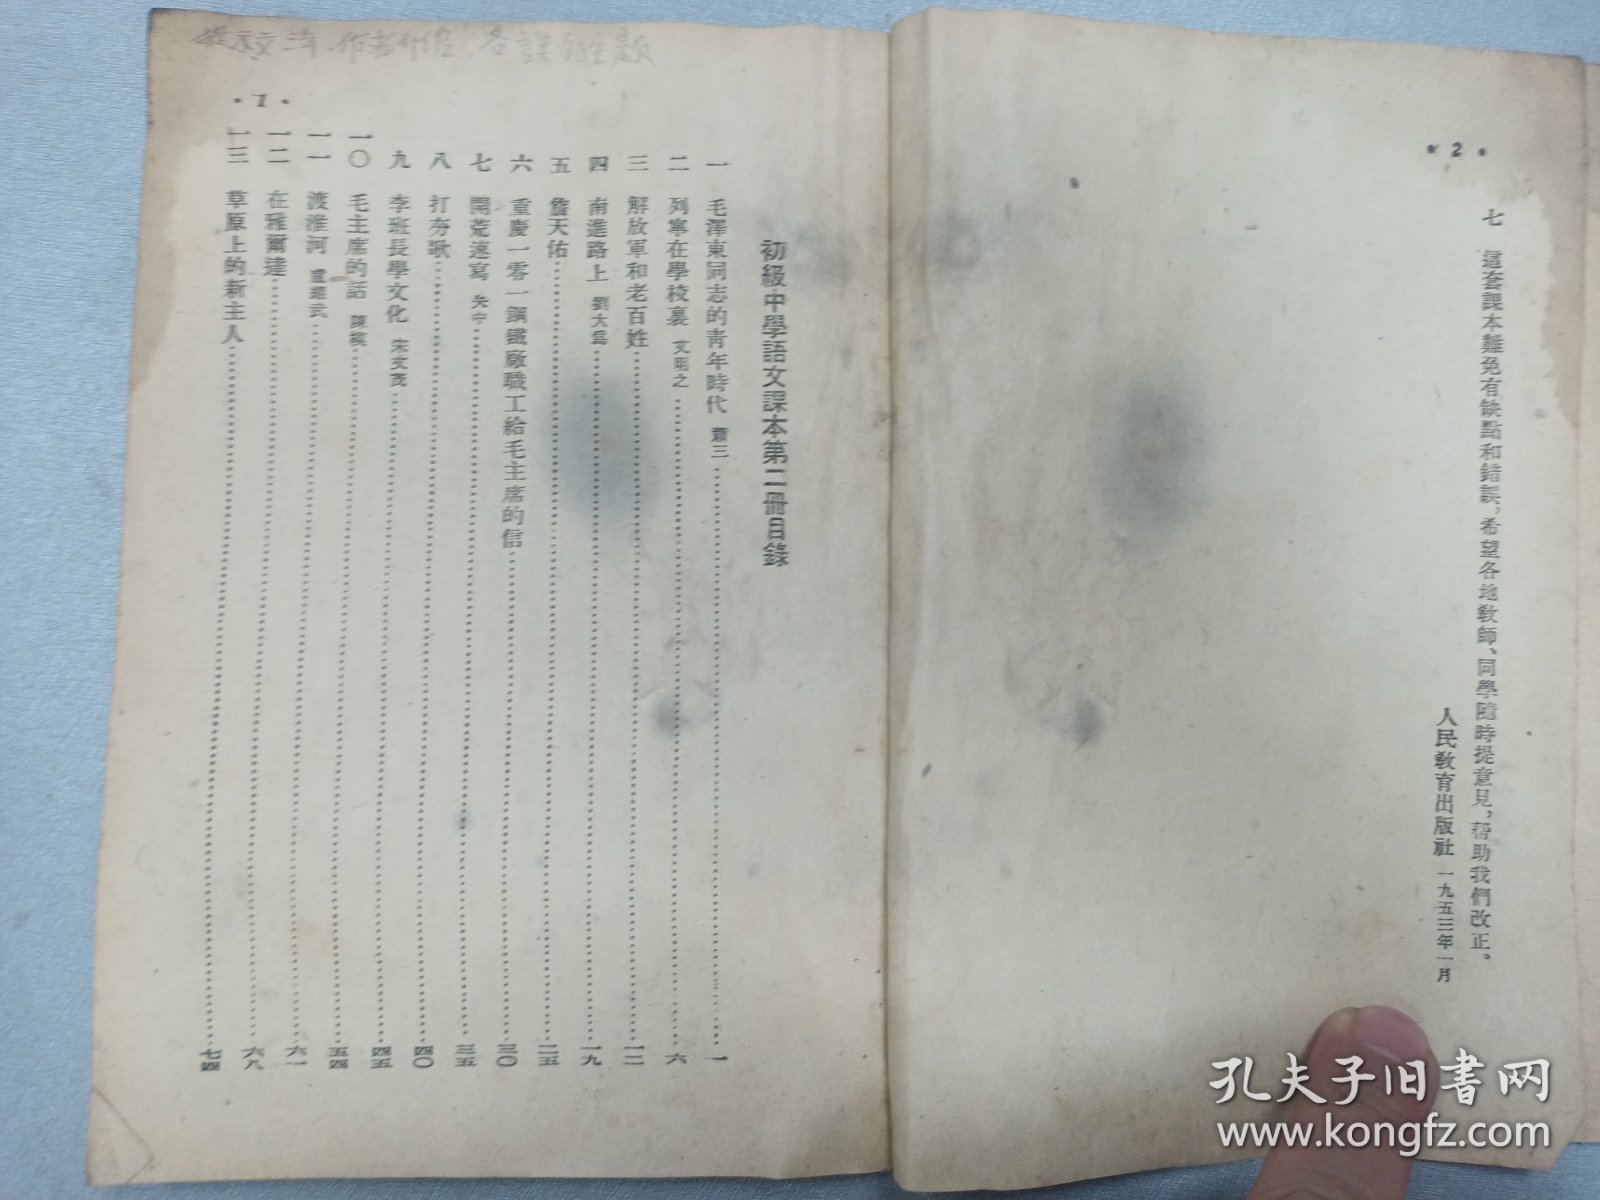 •2•
七　這套課本難免有缺點和錯誤，希望各地敎師、同學隨時提意見，幫助我們改正。
人民敎育出版社　一九五三年一月
初級中學語文課本第二冊目錄
一　毛澤東同志的青年時代　蕭三……一
二　列寧在學校裏　艾明之……六
三　解放軍和老百姓……一二
四　南進路上　劉大爲……一九
五　詹天佑……二五
六　重慶一零一鋼鐵廠職工給毛主席的信……三〇
七　開荒速寫　矢中……三五
八　打夯歌……四〇
九　李班長學文化　宋文茂……四五
一〇　毛主席的話　陳
一一　渡淮河　盧耀武……
一二　在雅爾達……
一三　草原上的新主人……
五四
六一
六八
七四
•1•
作者介紹、各課的主題
孔夫子旧书网
www.kongfz.com